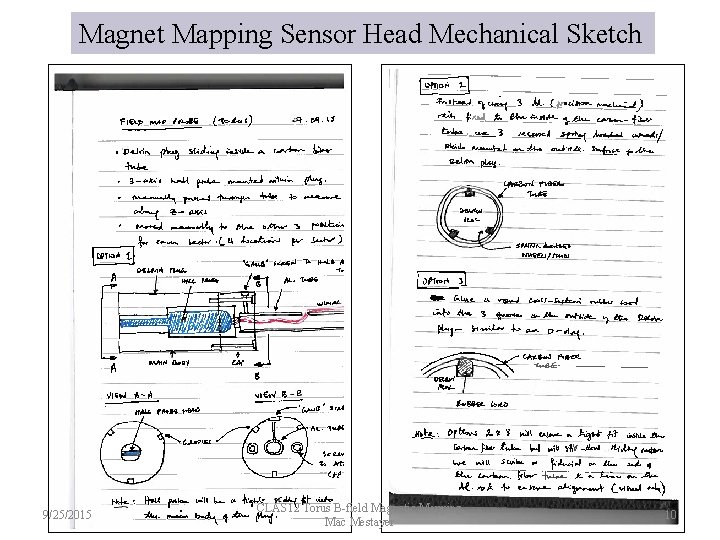 Magnet Mapping Sensor Head Mechanical Sketch
FIELD MAP PROBE (TORUS)
• Delrin plug sliding inside a carbon fiber
tube
• 3-axis hall probe mounted within plug.
• manually pushed through tube to measure
along Z-axis
• Moved manually to the other 3 position
for each sector. (4 locations per sector)
OPTION 1
DELRIN PLUG
HALL PROBE
"GRUB" SCREW TO HOLD A
TU
AL. TUBE
WIRING
A
B
A
MAIN BODY
CAP
B
VIEW A-A
VIEW B-B
HALL PROBE HEAD
"GRUB"
AL. TUBE
GROOVE
SCREW
TO AT
CAP
Note: Hall probe will be a tight sliding fit into
the main body of the plug.
OPTION 2
Instead of using 3 Al. (precision machined)
rails fixed to the inside of the carbon-fiber
tube use 3 spring loaded wheels/
mounted on the outside surface of the
Delrin plug.
CARBON FIBER
TUBE
DELRIN
PLUG
SPRING LOADED
OPTION 3
Glue a round rubber cord
into the 3 grooves on the outside of the Delrin
plug - similar to an O-ring.
CARBON FIBER
TUBE
DELRIN
PLUG
RUBBER CORD
Note: Options 2 & 3 will ensure a tight fit inside the
carbon fiber tube but will still allow sliding motion
We will scribe a fiducial on the end of
the carbon fiber tube & a line on the
Al. rod to ensure alignment (visual only)
9/25/2015
CLAS12 Torus B-field
Mac Mestayer
10